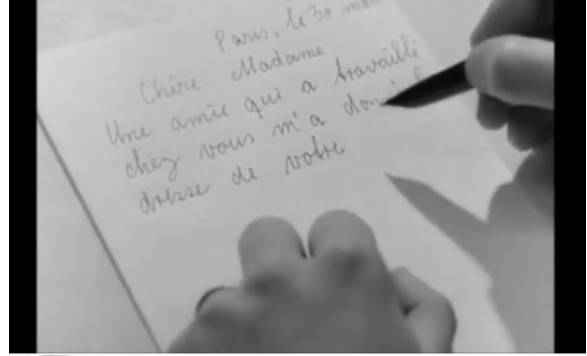 Paris, le 30 ma
Chère Madame
Une amie qui a travaillé
chez vous m'a donné l
dresse de votre